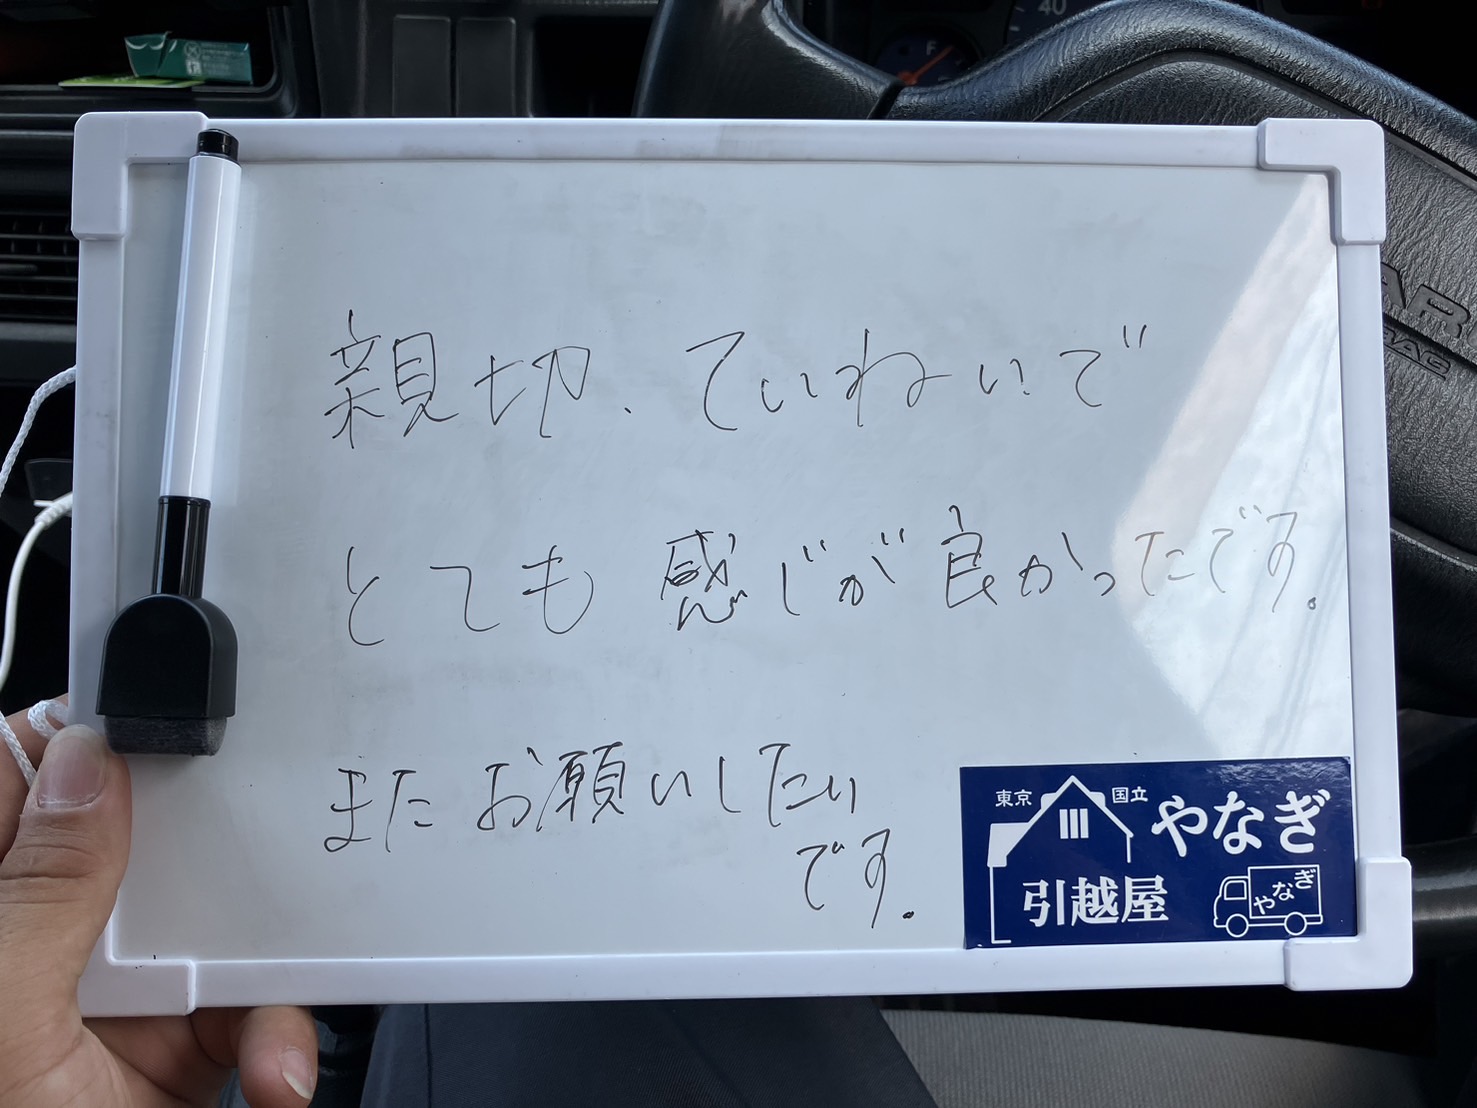 親切、ていねいで
とても感じが良かったです。
またお願いしたい
です。
東京 国立 やなぎ
引越屋
やなぎ
F
40